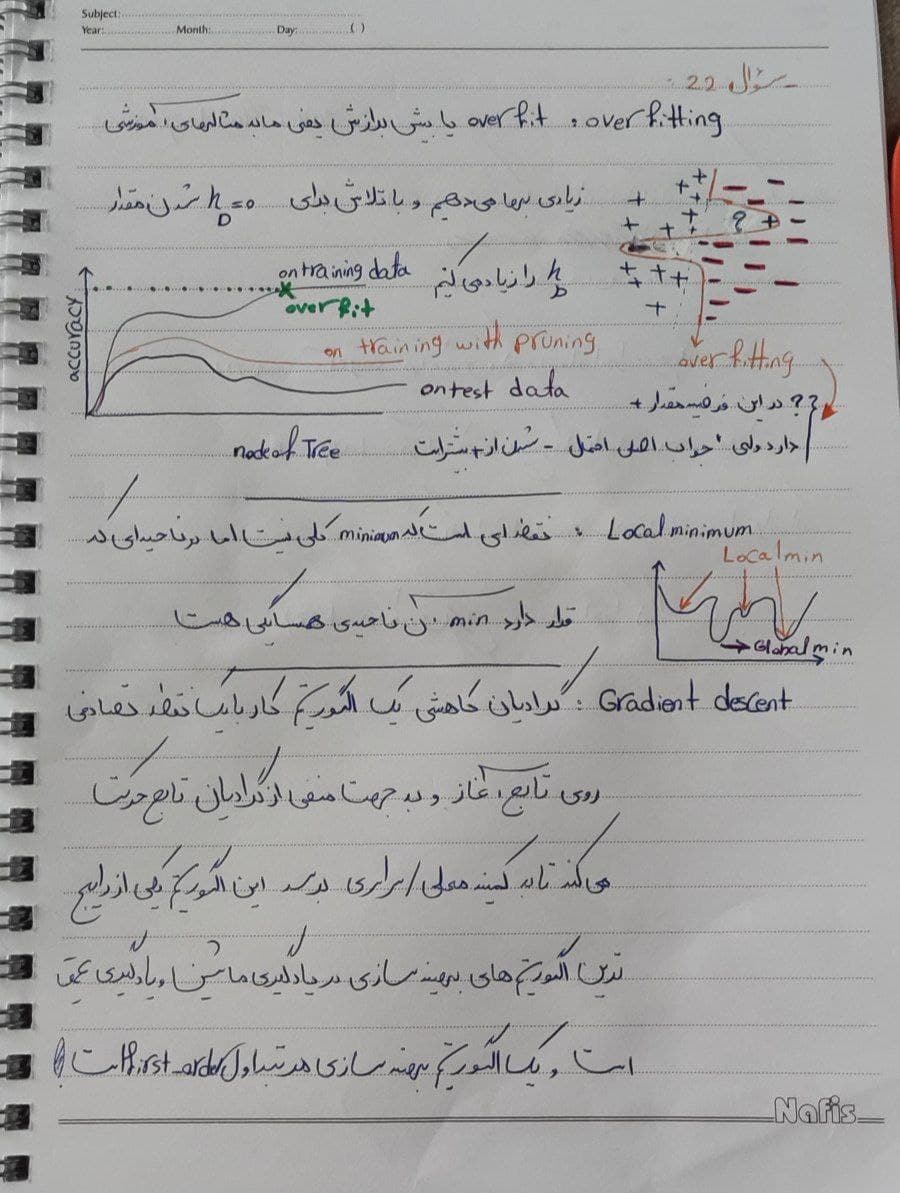 Subject:
Year: Month: Day: ( )
سؤال 22 :
over fitting : over fit یا بیش برازش یعنی ما به مثالهای آموزشی
زیادی بها می‌دهیم و با تلاش برای h_D=0 شدن مقدار
h_D را زیاد می‌کنیم
accuracy
on training data
over fit
on training with pruning
on test data
node of Tree
?
over fitting
?? در این فرضیه مقدار +
دارد ولی جواب اصلی احتمال - شدن از + بیشتر است
Local minimum : نقطه‌ای است که minimum کلی نیست اما در ناحیه‌ای که
قرار دارد min آن ناحیه‌ی همسایگی هست
Local min
Global min
Gradient descent : گرادیان کاهشی یک الگوریتم کار با یک نقطه تصادفی
روی تابع آغاز و به جهت منفی از گرادیان تابع حرکت
می‌کند تا به کمینه محلی/سراسری برسد این الگوریتم یکی از رایج
ترین الگوریتم های بهینه سازی در یادگیری ماشین و یادگیری عمیق
است و یک الگوریتم بهینه سازی مرتبه اول first_order است
Nafis